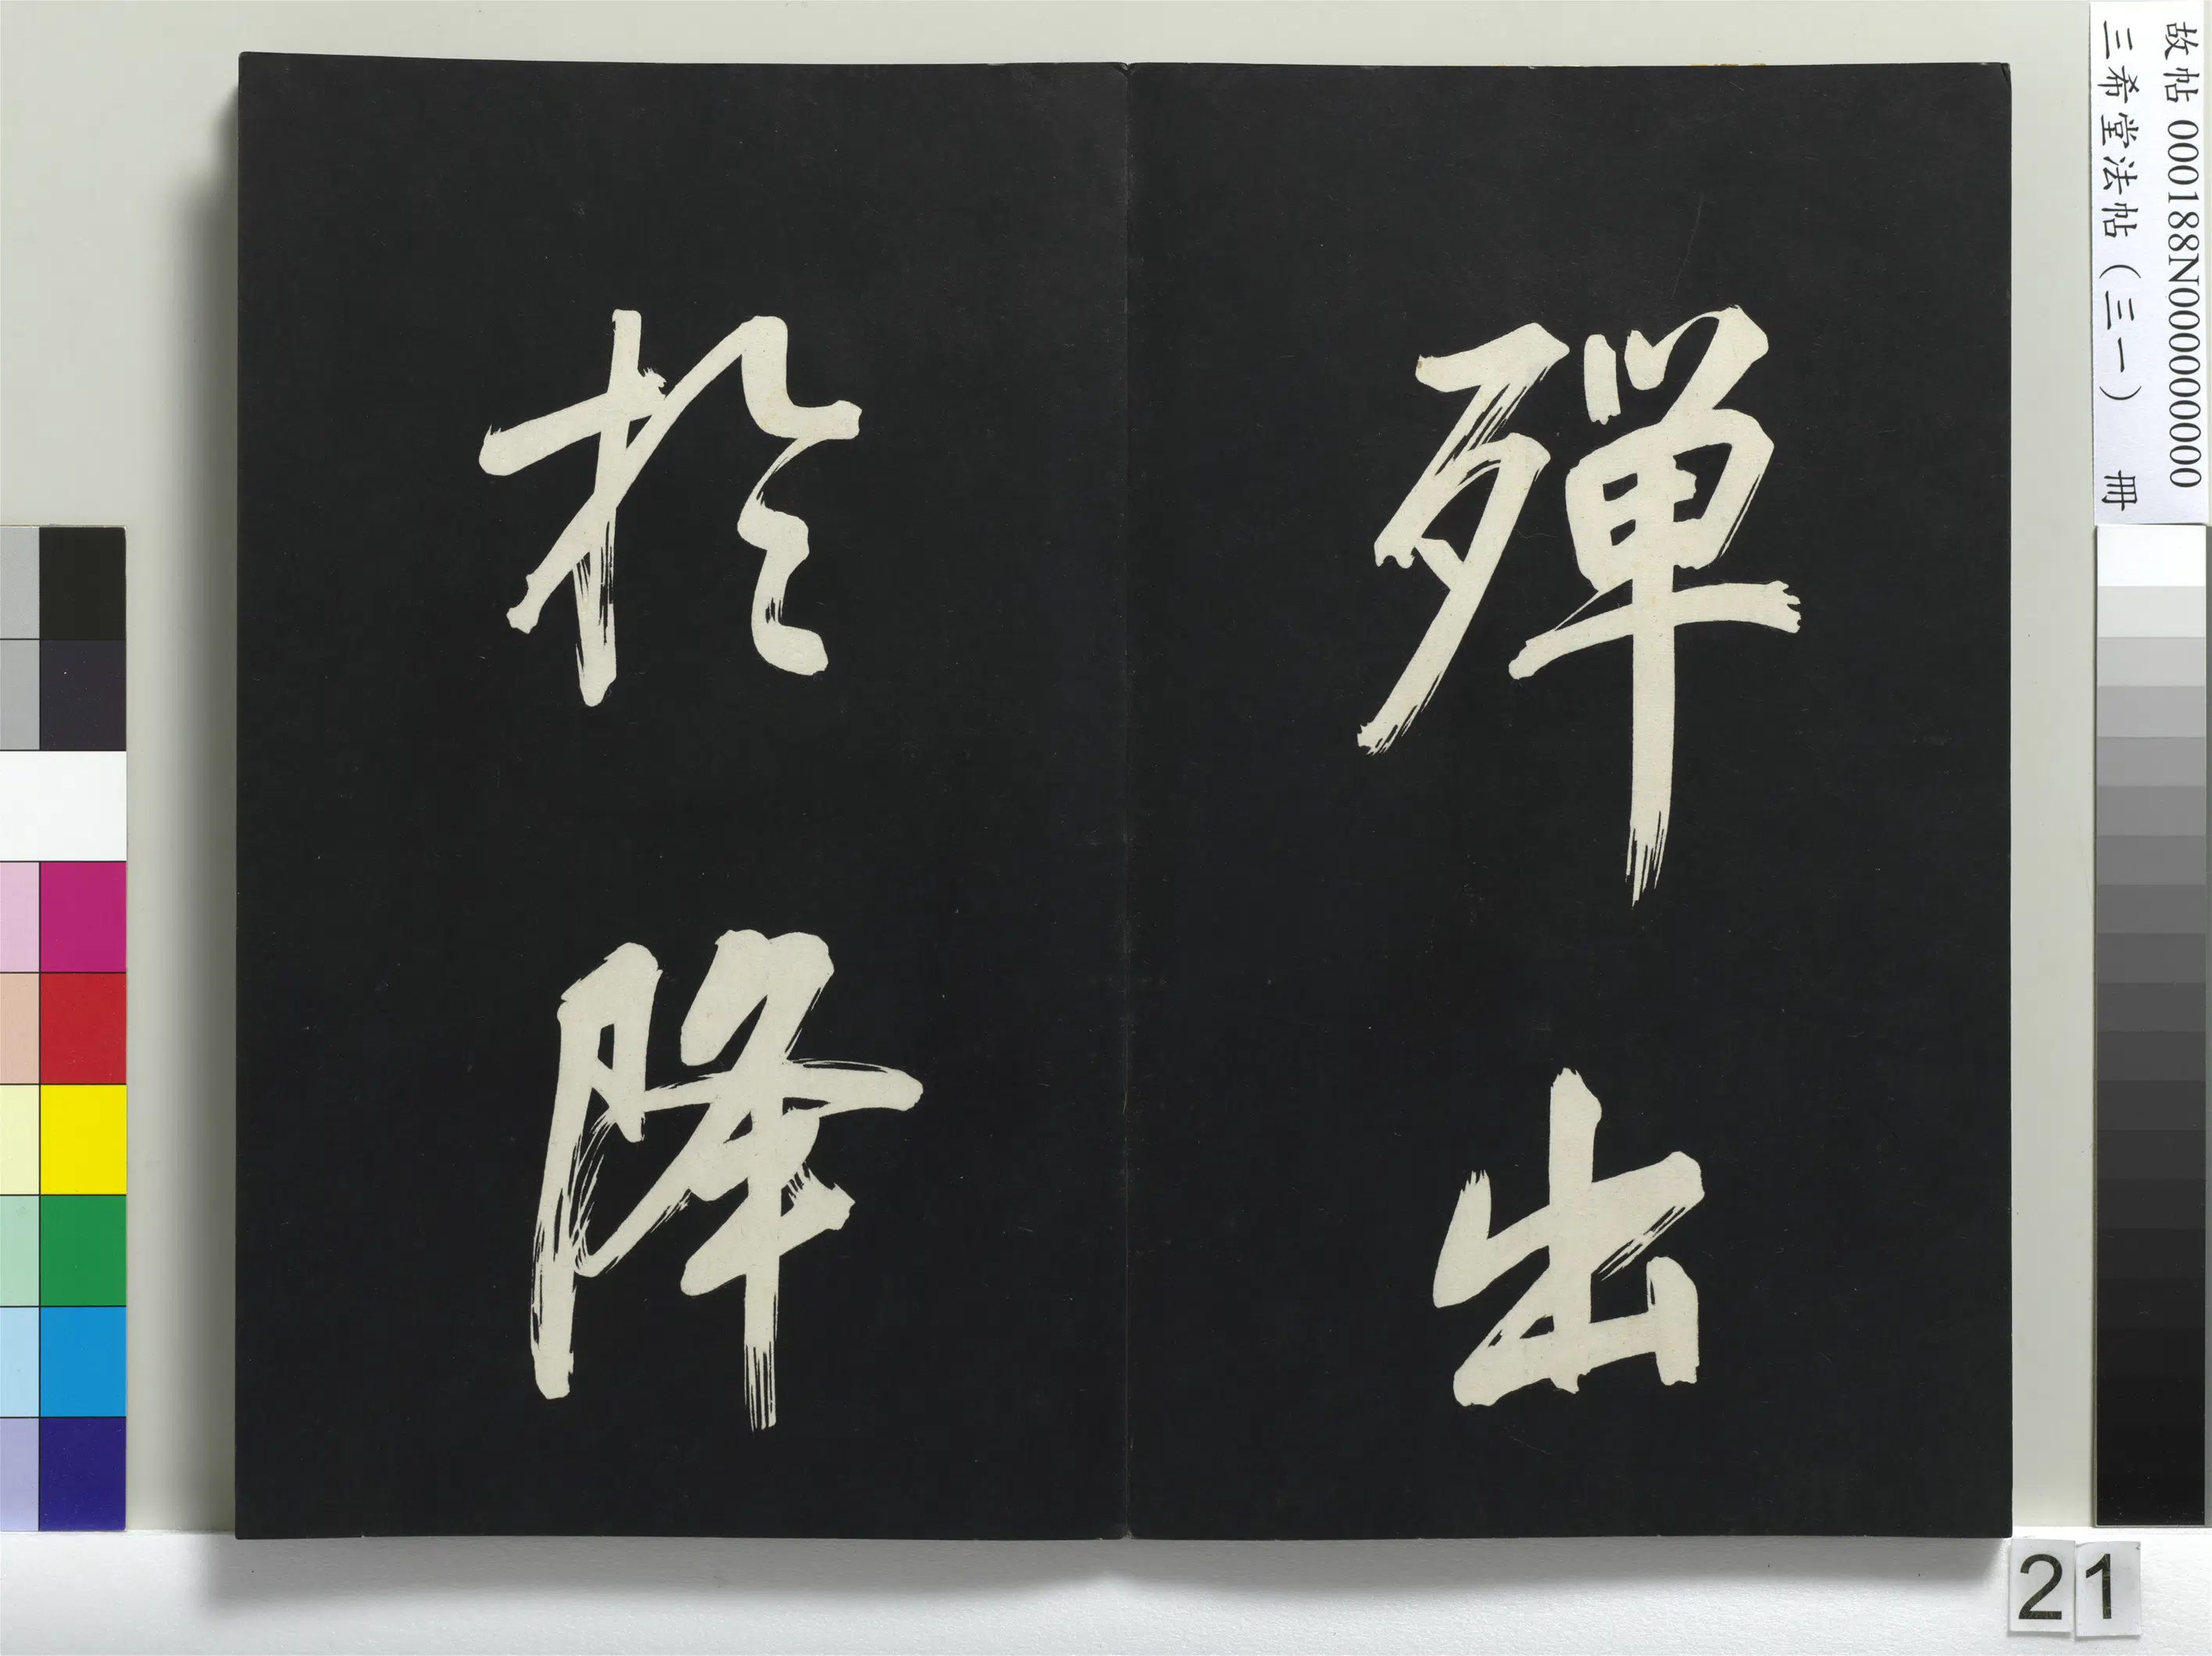 殫出
於降
故帖 000188N000000000
三希堂法帖（三一） 冊
21